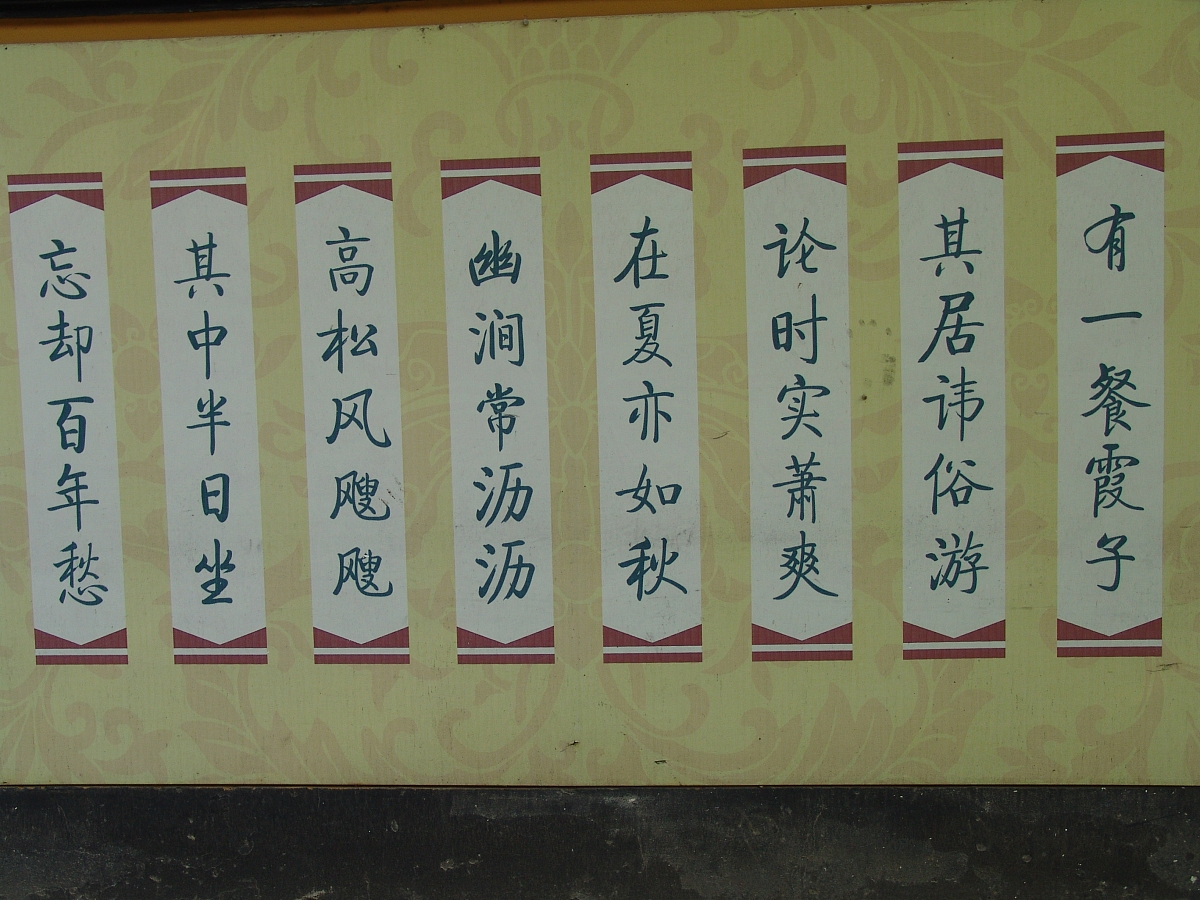 有一餐霞子
其居讳俗游
论时实萧爽
在夏亦如秋
幽涧常沥沥
高松风飕飕
其中半日坐
忘却百年愁